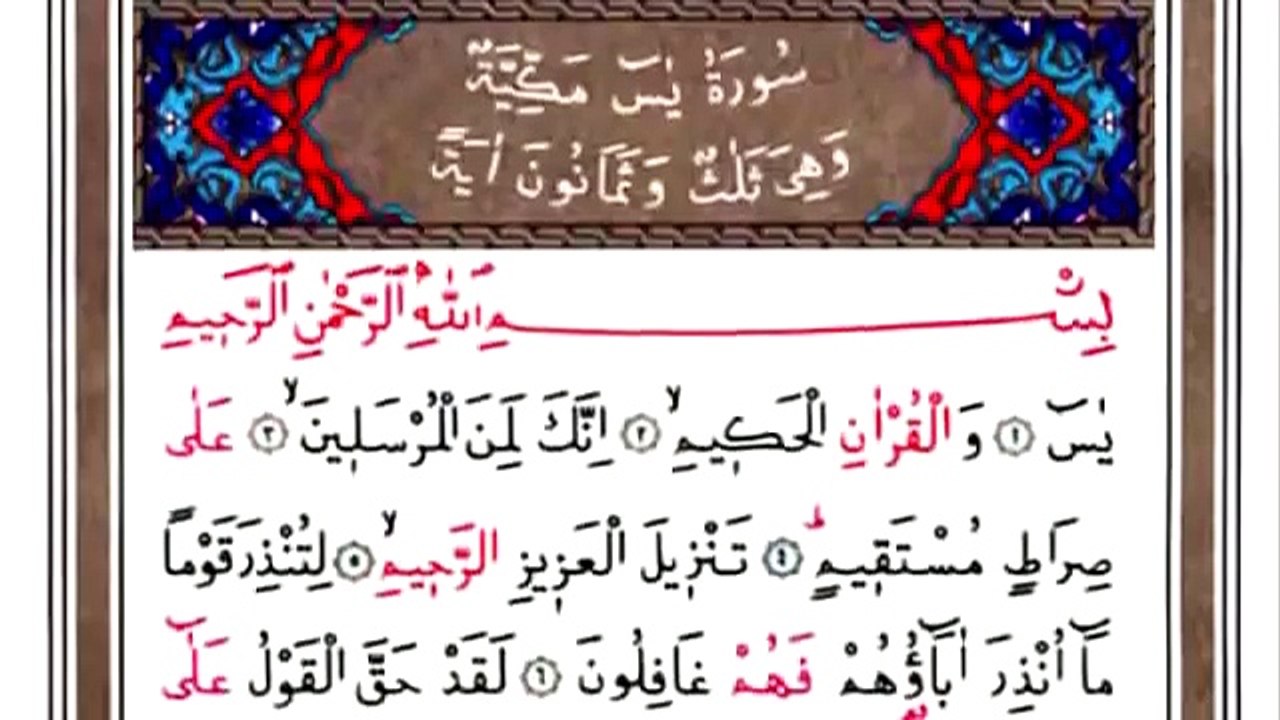 سُورَةُ يٰسٓ مَكِّيَّةٌ
وَهِىَ ثَلٰثٌ وَثَمَانُونَ اٰيَةً
بِسْمِ اللّٰهِ الرَّحْمٰنِ الرَّحِيمِ
يٰسٓ ﴿١﴾ وَالْقُرْاٰنِ الْحَكِيمِۙ ﴿٢﴾ اِنَّكَ لَمِنَ الْمُرْسَلِينَۙ ﴿٣﴾ عَلٰى
صِرَاطٍ مُسْتَقِيمٍۜ ﴿٤﴾ تَنْزِيلَ الْعَزِيزِ الرَّحِيمِۙ ﴿٥﴾ لِتُنْذِرَ قَوْمًا
مَٓا اُنْذِرَ اٰبَٓاؤُ۬هُمْ فَهُمْ غَافِلُونَ ﴿٦﴾ لَقَدْ حَقَّ الْقَوْلُ عَلٰٓى